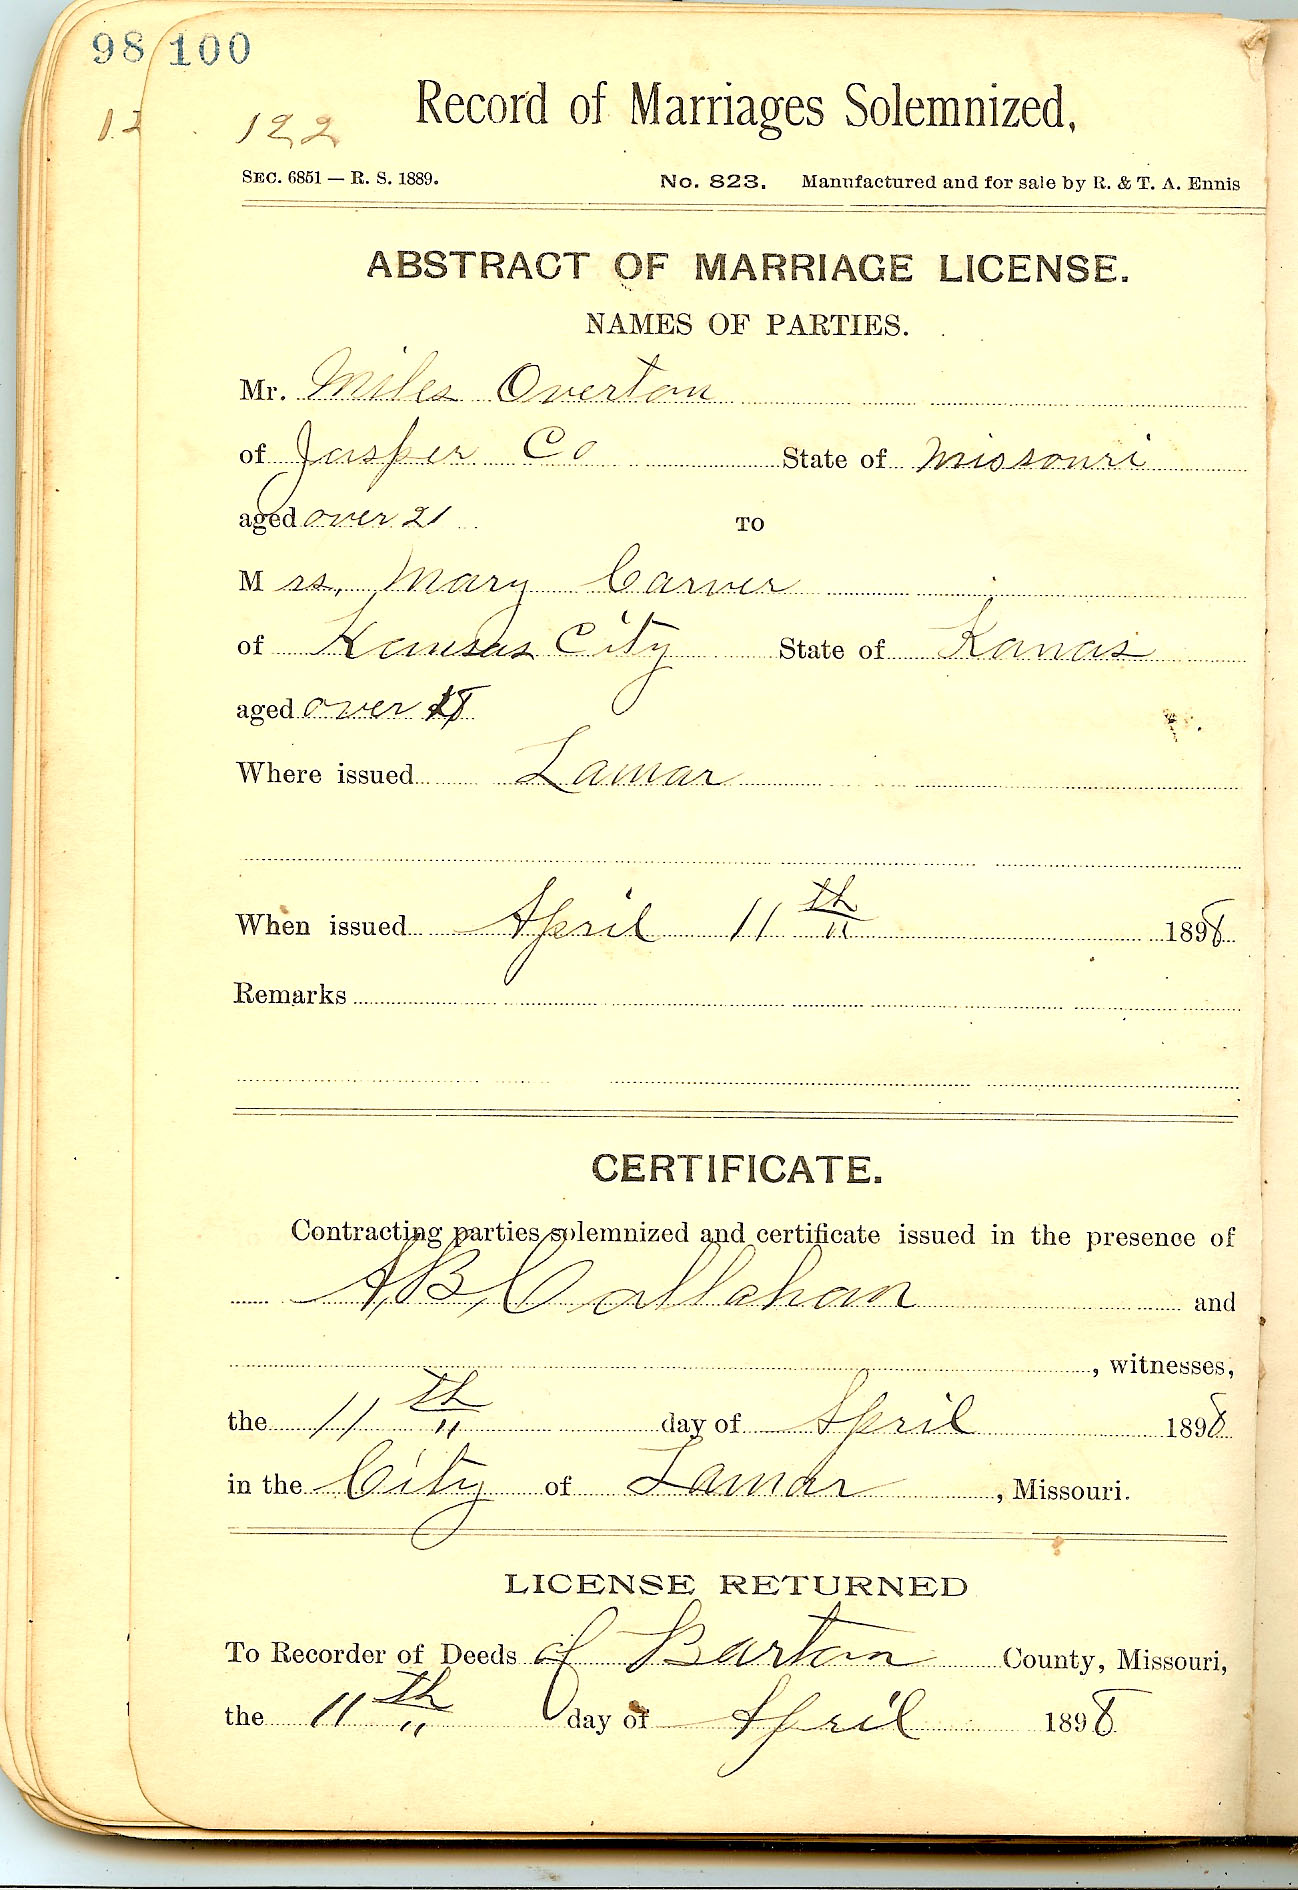 98 100
12 122
Record of Marriages Solemnized,
SEC. 6851 — R. S. 1889. No. 823. Manufactured and for sale by R. & T. A. Ennis
ABSTRACT OF MARRIAGE LICENSE.
NAMES OF PARTIES.
Mr. Miles Overton
of Jasper Co State of Missouri
aged over 21 TO
Mrs. Mary Carver
of Kansas City State of Kanas
aged over 18
Where issued Lamar
When issued April 11th 1898
Remarks
CERTIFICATE.
Contracting parties solemnized and certificate issued in the presence of
A, B, Callahan and
, witnesses,
the 11th day of April 1898
in the City of Lamar , Missouri.
LICENSE RETURNED
To Recorder of Deeds of Barton County, Missouri,
the 11th day of April 1898